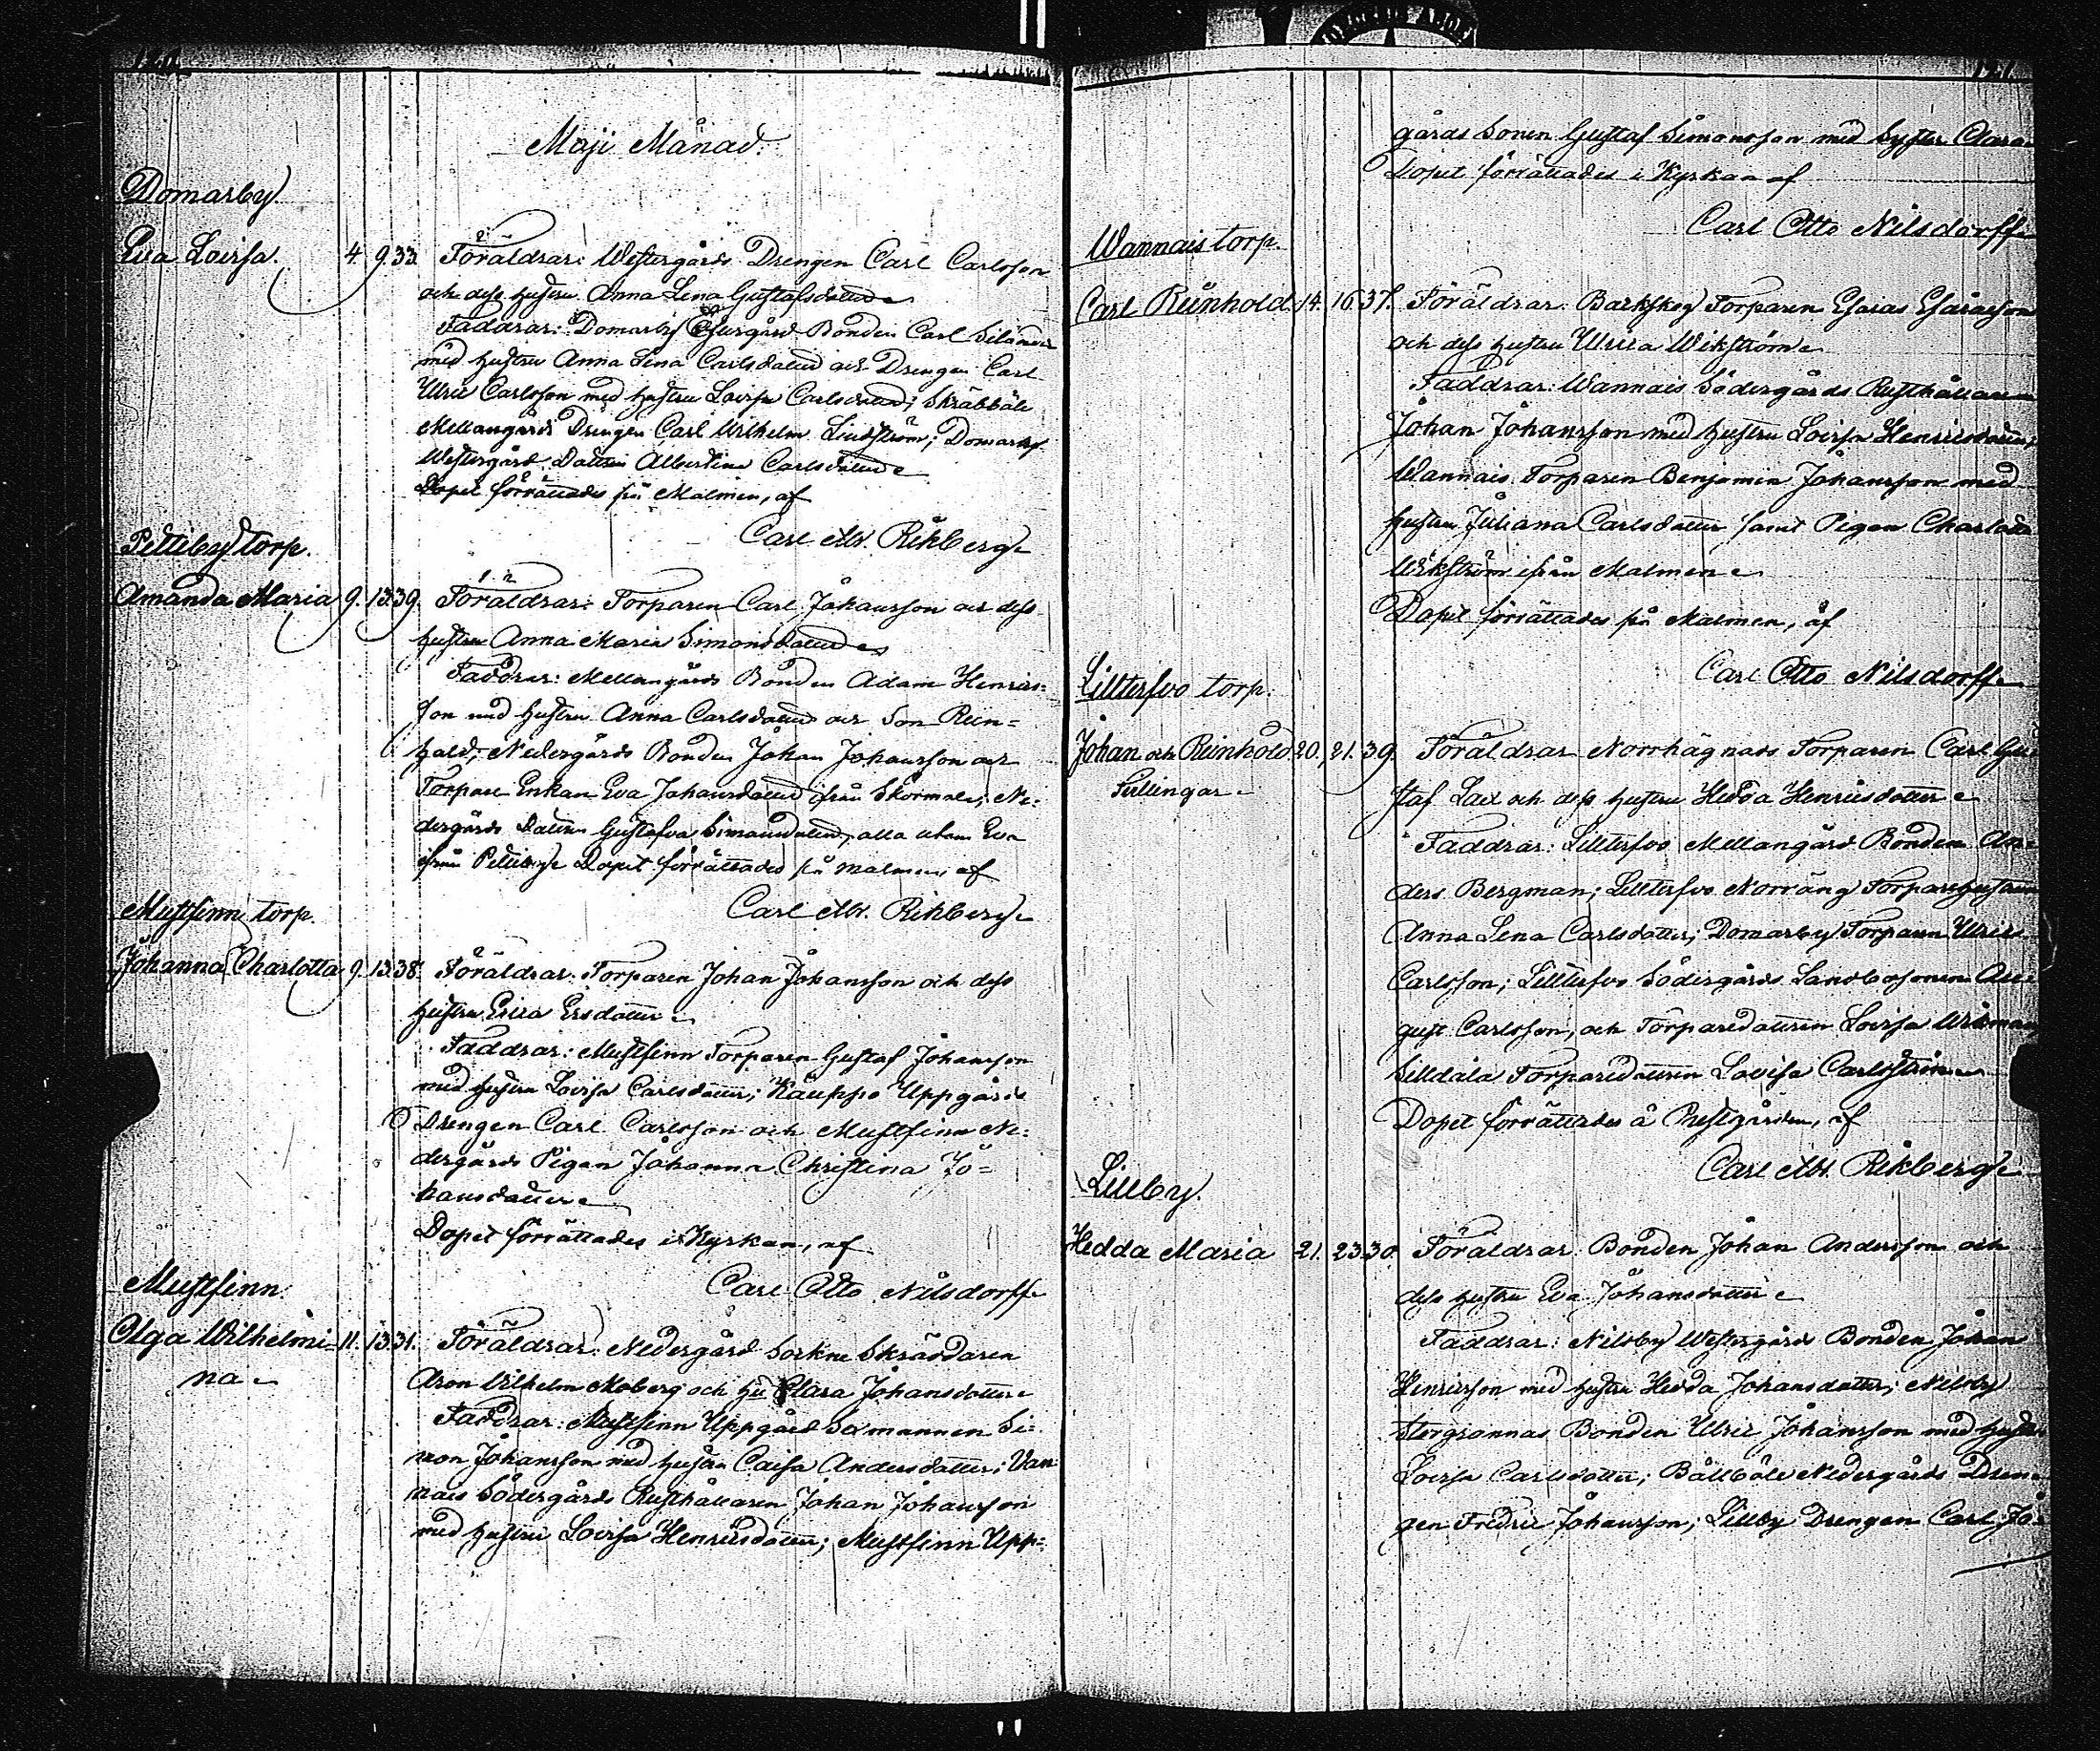 Maji Månad.
Domarby
Eva Lovisa. 4. 9. 33. Föräldrar: Westergårds Drengen Carl Carlsson
och dess hustru Anna Lena Gustafsdotter
Faddrar: Domarby Bonden Carl
med hustru Anna Lena Carlsdotter och Drengen Carl
Ulric Carlsson med hustru Lovisa Carlsdotter; Skräbböle
Mellangårds Drengen Carl Wilhelm Lindström; Domarby
Westergård Dottren Albertina Carlsdotter
Dopet förrättades på Malmen, af
Carl Ab. Rikberg
Petteby torp.
Amanda Maria 9. 13. 39. Föräldrar: Torparen Carl Johansson och dess
hustru Anna Maria Simonsdotter
Faddrar: Mellangårds Bonden Adam Henrics=
son med hustru Anna Carlsdotter och Son Rein=
hold; Nedergårds Bonden Johan Johansson och
Torpare Enkan Eva Johansdotter ifrån Skärmola; Ne=
dergårds Dottren Gustafva Simonsdotter, alla utom Eva
ifrån Petteby Dopet förrättades på Malmen, af
Carl Ab. Rikberg
Mustfinn torp.
Johanna Charlotta 9. 13. 38. Föräldrar: Torparen Johan Johansson och dess
hustru Erica Ersdotter
Faddrar: Mustfinn Torparen Gustaf Johansson
med hustru Lovisa Carlsdotter; Käuppo Uppgårds
Drengen Carl Carlsson och Mustfinn Ne=
dergårds Pigan Johanna Christina Jo=
hansdotter
Dopet förrättades i Kyrkan, af
Carl Otto Nilsdorff
Mustfinn.
Olga Wilhelmi= 11. 13. 31. Föräldrar: Nedergård Sockne Skräddaren
na Aron Vilhelm Moberg och hu Clara Johansdotter
Faddrar: Mustfinn Uppgård Sexmannen Si=
mon Johansson med hustru Caisa Andersdotter; Van=
nais Södergårds Rusthållaren Johan Johansson
med hustru Lovisa Henricsdotter; Mustfinn Upp=
gårds Sonen Gustaf Simonsson med Syster Clara
Dopet förrättades i Kyrkan af
Carl Otto Nilsdorff
Wannais torp.
Carl Reinhold. 14. 16. 37. Föräldrar: Torparen Esaias Esaiasson
och dess hustru Ulrica Wikström
Faddrar: Wannais Södergårds Rusthållaren
Johan Johansson med hustru Lovisa Henricsdotter;
Wannais Torparen Benjamin Johansson med
hustru Juliana Carlsdotter samt Pigan Charlotta
Wikström ifrån Malmen
Dopet förrättades på Malmen, af
Carl Otto Nilsdorff
Lilltersvo torp.
Johan och Reinhold 20. 21. 39. Föräldrar Norrhägnads Torparen Carl Gu=
Tvillingar staf Lax och dess hustru Hedda Henricsdotter
Faddrar: Lilltersvo Mellangård Bonden An=
ders Bergman; Lilltersvo Norräng Torparehustrun
Anna Lena Carlsdotter; Domarby Torparen Ulric
Carlsson; Lilltersvo Södergårds Landbosonen Au=
gust Carlsson, och Torparedottren Lovisa Wikman
Silldala Torparedottren Lovisa Carlström
Dopet förrättades å Prestgården, af
Carl Ab. Rikberg
Lillby.
Hedda Maria 21. 23. 30. Föräldrar: Bonden Johan Andersson och
dess hustru Eva Johansdotter
Faddrar: Nilsby Westergårds Bonden Johan
Henricsson med hustru Hedda Johansdotter; Nilsby
Storgrannas Bonden Ulric Johansson med hustru
Lovisa Carlsdotter; Bällböle Nedergårds Dren=
gen Fredric Johansson; Lillby Drengen Carl Jo=